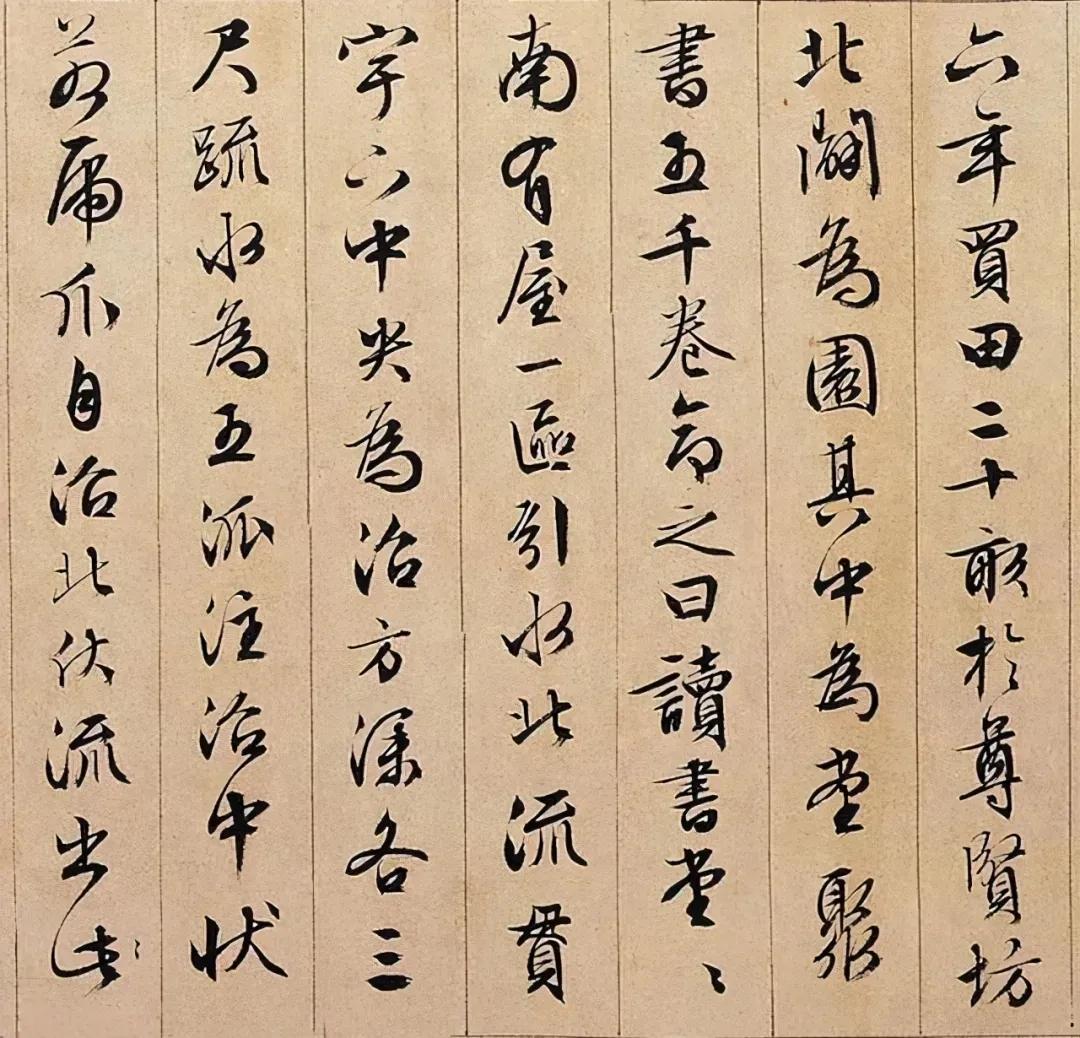 六年買田二十畝於尊賢坊
北闢為園其中為堂聚
書五千卷命之曰讀書堂〻
南有屋一區引水北流貫
宇下中央為沼方深各三
尺疏水為五派注沼中狀
若虎爪自沼北伏流出